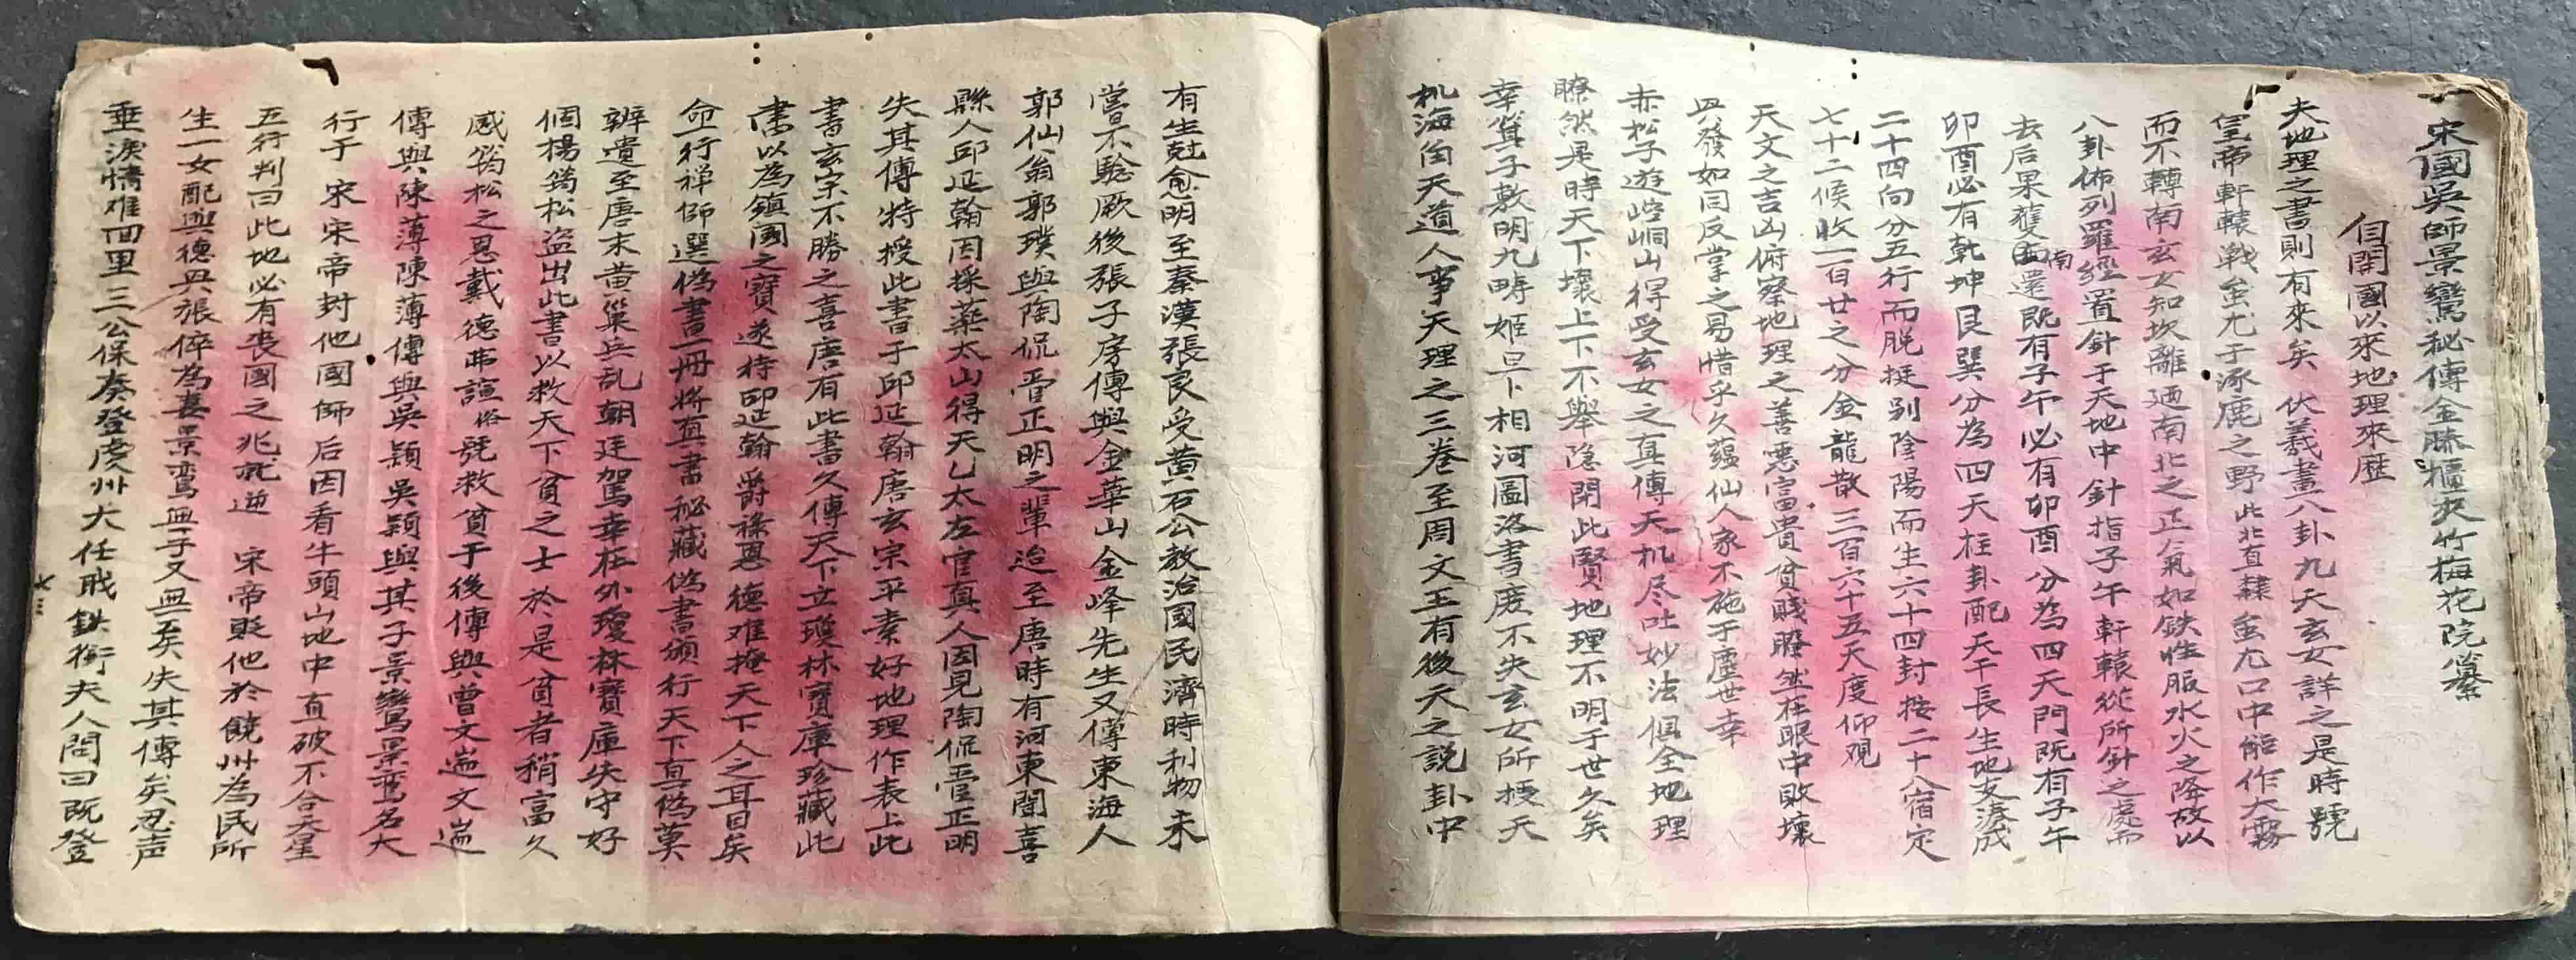 宋國吳師景鸞秘傳金滕櫃夾竹梅花院纂
自開國以來地理來歷
夫地理之書則有來矣 伏羲畫八卦九天玄女詳之是時號
皇帝軒轅戰蚩尤于涿鹿之野此北直隸蚩尤口中能作大霧
而不轉南玄女知坎離廼南北之正氣如鉄性服水火之降故以
八卦佈列羅經置針于天地中針指子午軒轅從所針之處而
去后果獲南還既有子午必有卯酉分為四天門既有子午
卯酉必有乾坤艮巽分為四天柱卦配天干長生地支湊成
二十四向分五行而脱挺别陰陽而生六十四封按二十八宿定
七十二候收一百廿之分金龍散三百六十五天度仰观
天文之吉凶俯察地理之善悪富貴貧賤瞭然在眼中敗壞
與發如同反掌之易惜乎久蘊仙人家不施于塵世幸
赤松子遊崆峒山得受玄女之真傳天机尽吐妙法俱全地理
瞭然是時天下壤上下不舉隐閉此賢地理不明于世久矣
幸箕子敷明九疇姬旦卜相河圖洛書庶不失玄女所授天
机海角天道人事天理之三卷至周文王有後天之説卦中
有生尅愈明至秦漢張良受黄石公教治國民濟時利物未
嘗不驗厥後張子房傳與金華山金峰先生又傳東海人
郭仙翁郭璞與陶侃晉正明之輩迨至唐時有河東聞喜
縣人邱延翰因採藥太山得天乙太左官真人因見陶侃晉正明
失其傳特授此書于邱延翰唐玄宗平素好地理作表上此
書玄宗不勝之喜唐有此書久傳天下立瓊林寶庫珍藏此
書以為鎮國之寶遂待邱延翰爵祿恩德难掩天下人之耳目矣
命一行禅師選偽書一冊将真書秘藏偽書頒行天下真偽莫
辨遺至唐末黄巢兵乱朝廷駕幸在外瓊林寶庫失守好
個楊筠松盗出此書以救天下貧之士於是貧者稍富久
感筠松之恩戴德弗諠俗號救貧于後傳與曾文遄文遄
傳與陳薄陳薄傳與吳穎吳穎與其子景鸞景鸾名大
行于 宋宋帝封他國師后因看牛頭山地中直破不合天星
五行判曰此地必有丧國之兆𠰥逆 宋帝貶他於饒州為民所
生一女配與德與張倅為妻景鸾無子又無矣失其傳矣忍声
垂淚情难四里三公保奏登虔州大任戝鉄衛夫人問曰既登